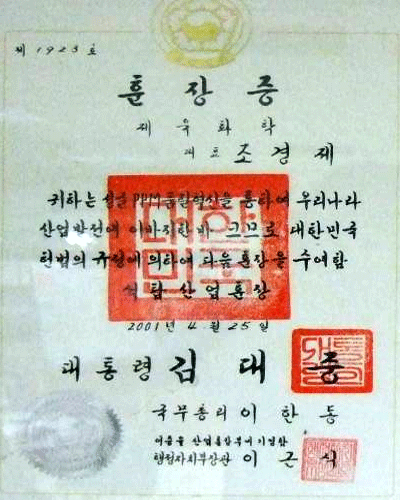 제 1923 호
훈장증
제욱화학
대표 조경제
귀하는 싱글 PPM 품질혁신을 통하여 우리나라
산업발전에 이바지한바 크므로 대한민국
헌법의 규정에 의하여 다음 훈장을 수여함
석탑산업훈장
2001년 4월 25일
대통령 김대중
국무총리 이한동
이증을 산업훈장부에 기입함
행정자치부장관 이근식